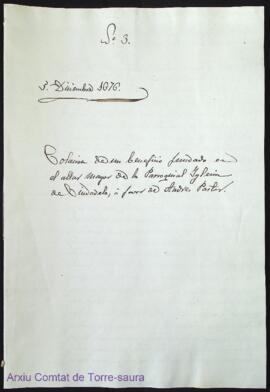 Nº 3.
3. Diciembre 1676.
Colacion de un beneficio fundado en
el altar mayor de la Parroquial Iglesia
de Ciudadela, á favor de Andres Pastor.
Arxiu Comtat de Torre-saura